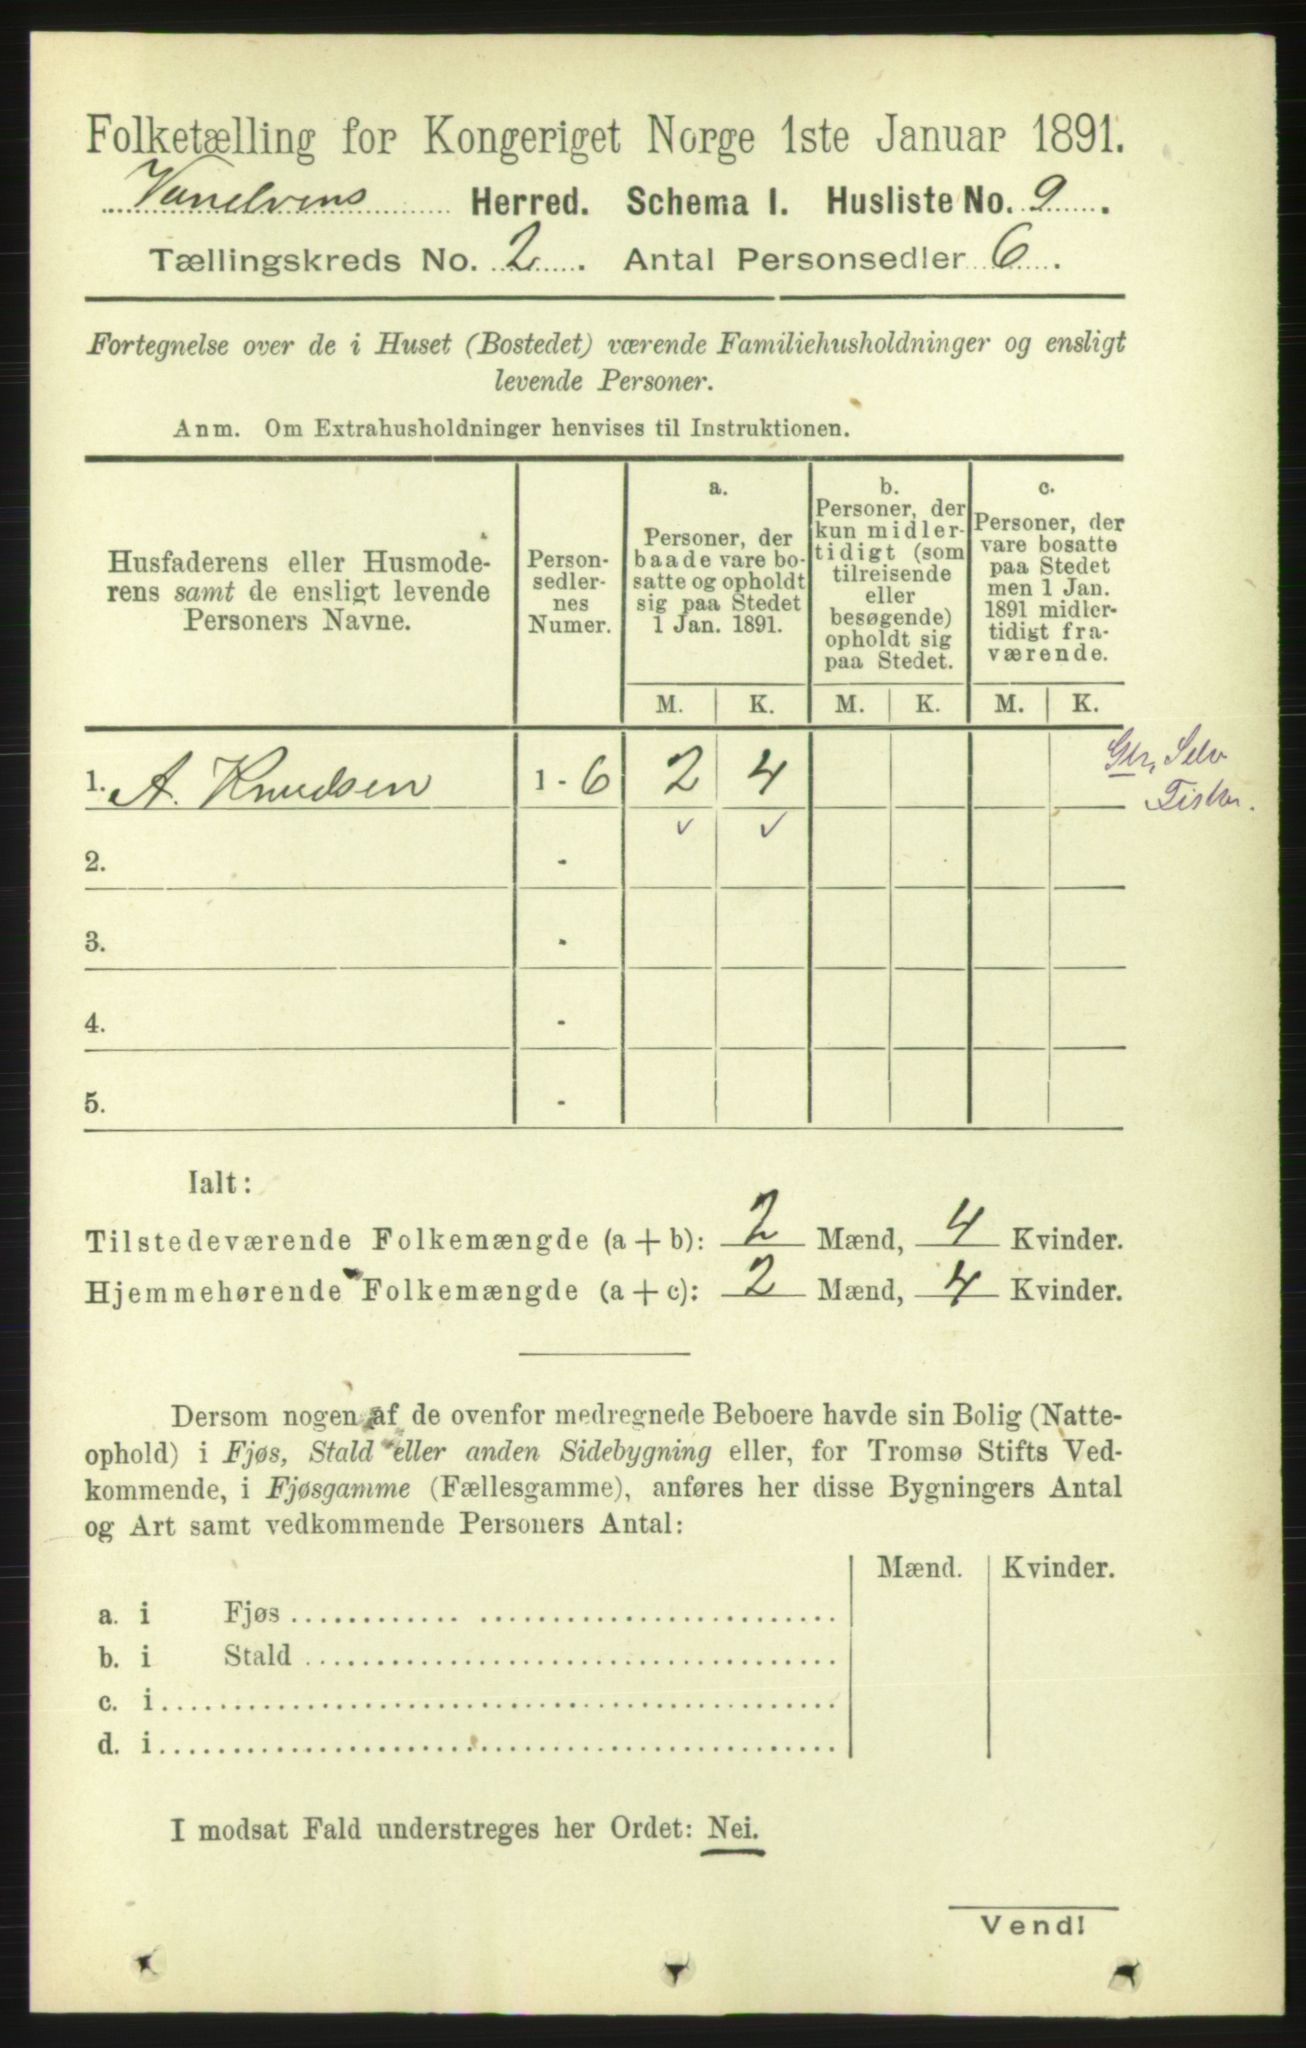 Folketælling for Kongeriget Norge 1ste Januar 1891.
Vanelvens Herred. Schema I. Husliste No. 9.
Tællingskreds No. 2. Antal Personsedler 6.
Fortegnelse over de i Huset (Bostedet) værende Familiehusholdninger og ensligt
levende Personer.
Anm. Om Extrahusholdninger henvises til Instruktionen.
Husfaderens eller Husmode-
rens samt de ensligt levende
Personers Navne.
Person-
sedler-
nes
Numer.
a.
Personer, der
baade vare bo-
satte og opholdt
sig paa Stedet
1 Jan. 1891.
b.
Personer, der
kun midler-
tidigt (som
tilreisende
eller
besøgende)
opholdt sig
paa Stedet.
c.
Personer, der
vare bosatte
paa Stedet
men 1 Jan.
1891 midler-
tidigt fra-
værende.
M. K. M. K. M. K.
1. A. Knudsen 1 - 6 2 4
Gbr, Selv
Fisker.
✓ ✓
2. -
3. -
4. -
5. -
Ialt:
Tilstedeværende Folkemængde (a + b): 2 Mænd, 4 Kvinder.
Hjemmehørende Folkemængde (a + c): 2 Mænd, 4 Kvinder.
Dersom nogen af de ovenfor medregnede Beboere havde sin Bolig (Natte-
ophold) i Fjøs, Stald eller anden Sidebygning eller, for Tromsø Stifts Ved-
kommende, i Fjøsgamme (Fællesgamme), anføres her disse Bygningers Antal
og Art samt vedkommende Personers Antal:
Mænd. Kvinder.
a. i Fjøs
b. i Stald
c. i
d. i
I modsat Fald understreges her Ordet: Nei.
Vend!